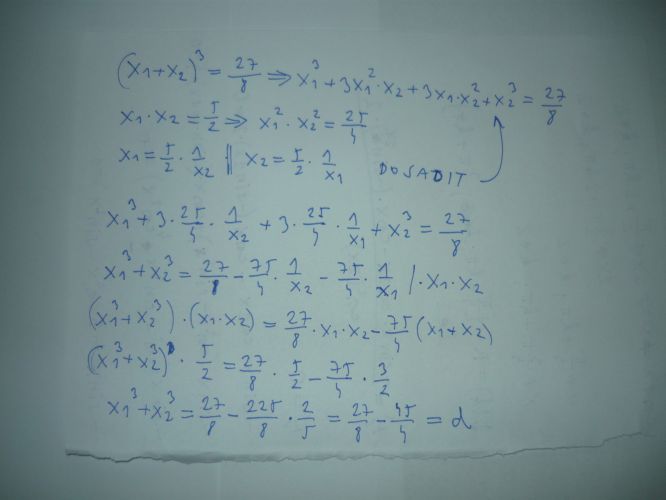 (x₁+x₂)³ = 27/8 ⇒ x₁³ + 3x₁²·x₂ + 3x₁·x₂² + x₂³ = 27/8
x₁·x₂ = 5/2 ⇒ x₁²·x₂² = 25/4
x₁ = 5/2 · 1/x₂ || x₂ = 5/2 · 1/x₁ DOSADIT
x₁³ + 3·25/4·1/x₂ + 3·25/4·1/x₁ + x₂³ = 27/8
x₁³ + x₂³ = 27/8 - 75/4·1/x₂ - 75/4·1/x₁ /·x₁·x₂
(x₁³ + x₂³)·(x₁·x₂) = 27/8·x₁·x₂ - 75/4(x₁+x₂)
(x₁³ + x₂³)·5/2 = 27/8·5/2 - 75/4·3/2
x₁³ + x₂³ = 27/8 - 225/8·2/5 = 27/8 - 45/4 = d